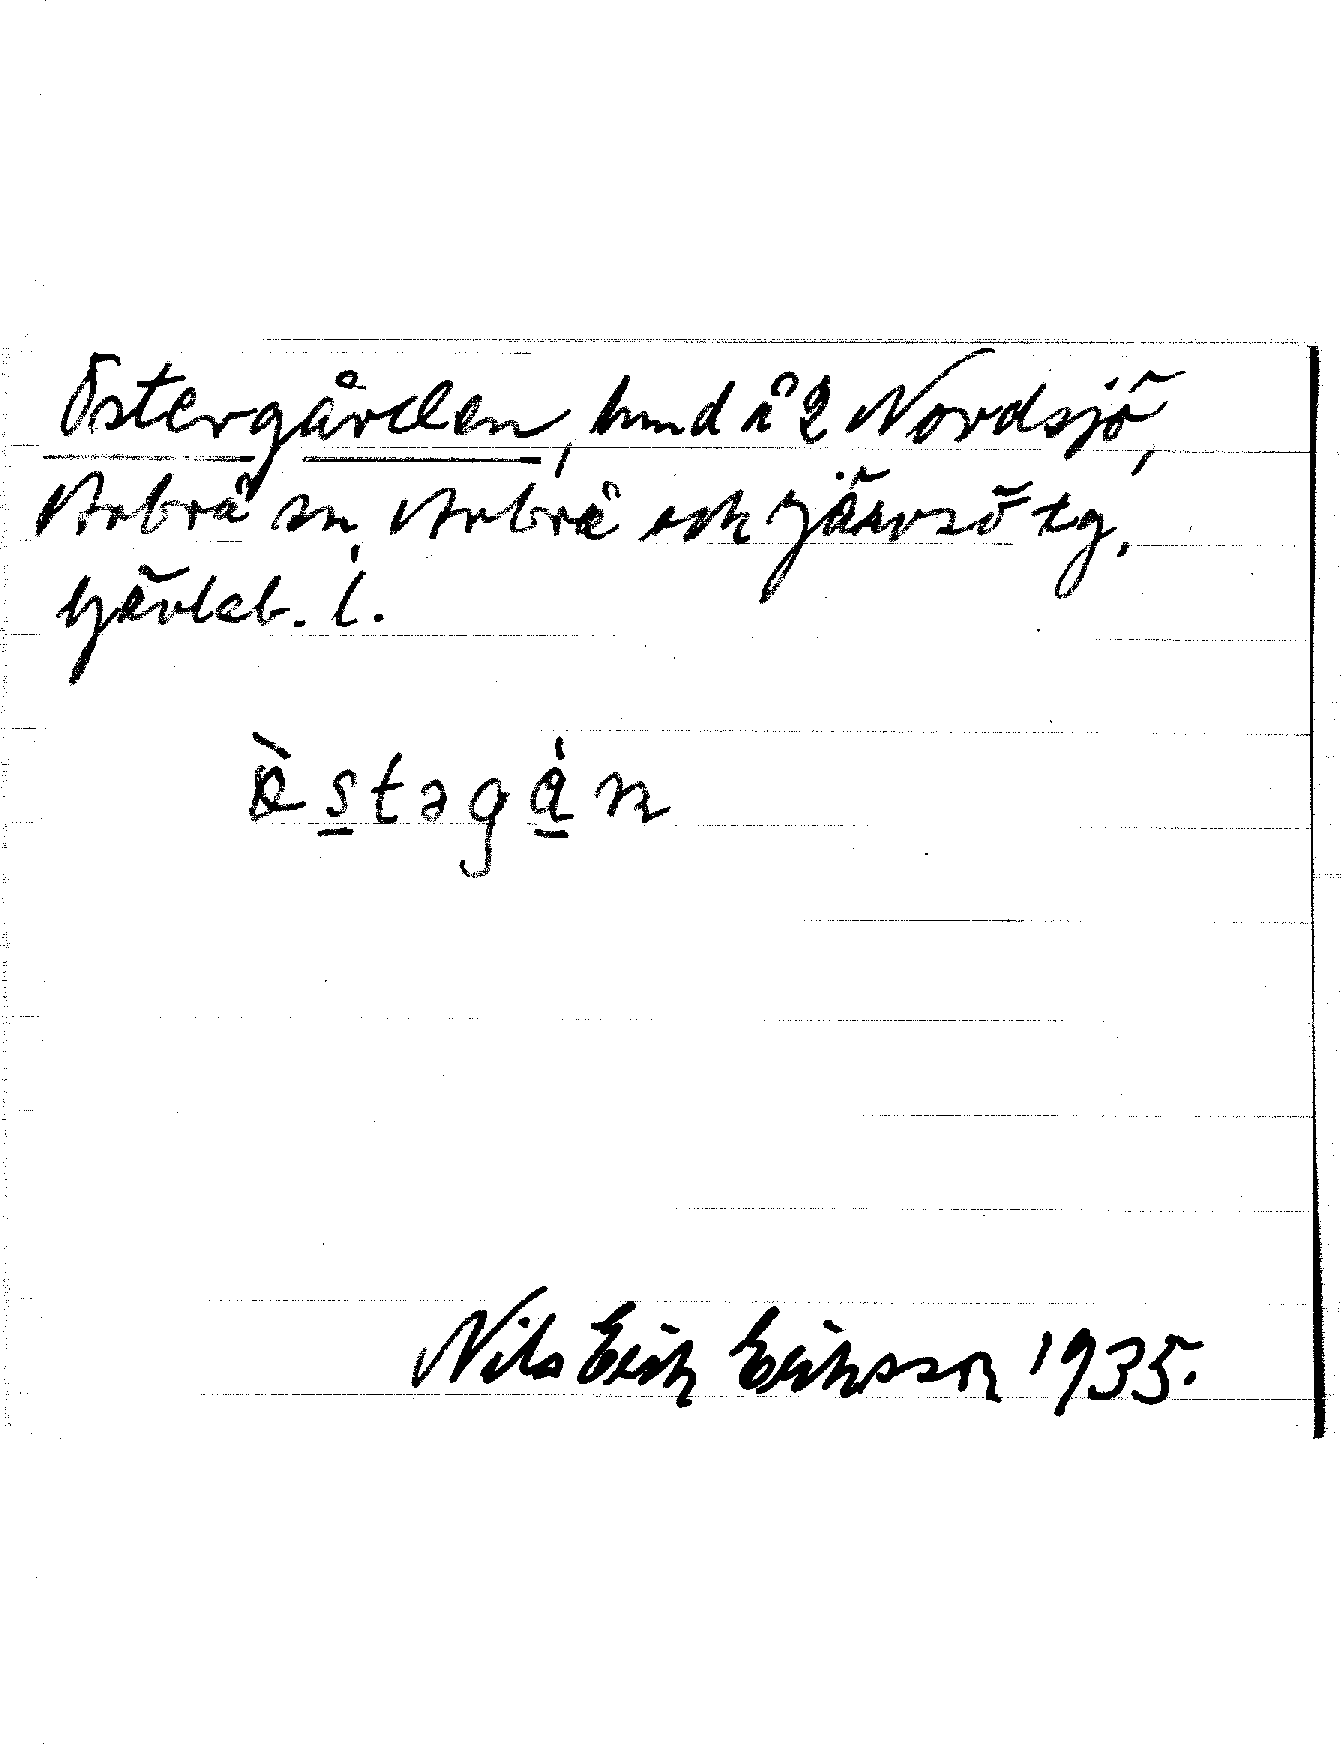 Östergården, hmd å 2 Nordsjö,
Arbrå sn, Arbrå och Järvsö tg,
Gävleb. l.
Nils Erik Eriksson 1935.